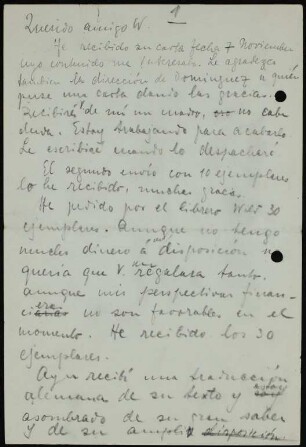 1
Querido amigo W.
He recibido su carta fecha 7 Noviembre
cuyo contenido me interesaba. Le agradezco
tambien la dirección de Dominguez a quién
puse una carta dando las gracias.
Recibirá de mi un cuadro, no cabe
duda. Estoy trabajando para acabarlo.
Le escribiré cuando lo despacharé
El segundo envio con 10 ejemplares
lo he recibido, muchas gracias.
He pedido por el librero W 30
ejemplares. Aunque no tengo
mucho dinero á disposición no
queria que V. regalara tanto.
aunque mis perspectivas finan-
cieras no son favorables en el
momento. He recibido los 30
ejemplares.
Ayer recibí una traducción
alemana de su texto y estoy
asombrado de su gran saber
y de su amplia disposición